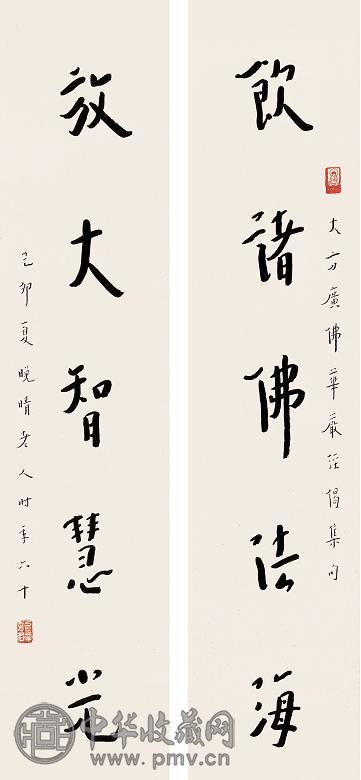 飲諸佛法海
大方廣佛華嚴經偈集句
放大智慧光
己卯夏晚晴老人時年六十
中华收藏网
www.pmv.cn